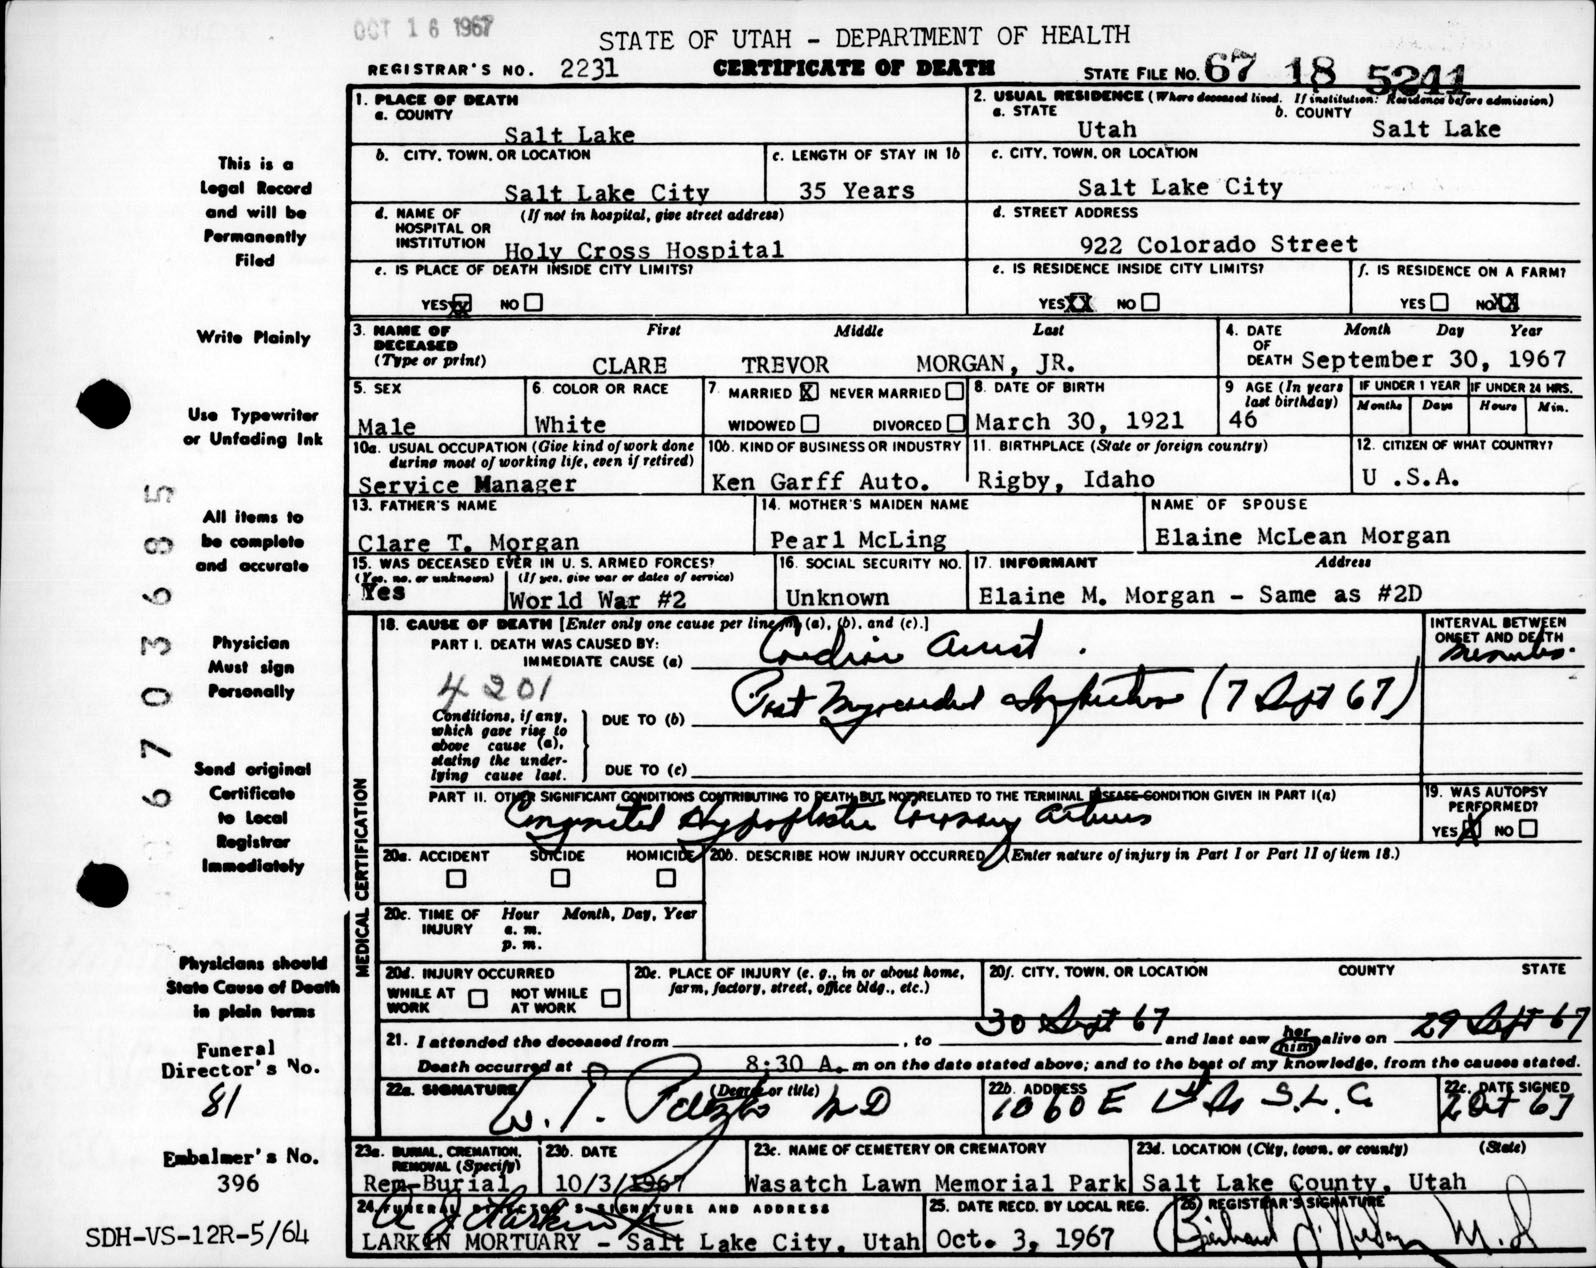 OCT 16 1967
STATE OF UTAH - DEPARTMENT OF HEALTH
REGISTRAR'S NO. 2231 CERTIFICATE OF DEATH STATE FILE NO. 67 18 5244
1. PLACE OF DEATH
a. COUNTY
Salt Lake
2. USUAL RESIDENCE (Where deceased lived. If institution: Residence before admission)
a. STATE b. COUNTY
Utah Salt Lake
b. CITY, TOWN, OR LOCATION
Salt Lake City
c. LENGTH OF STAY IN 1b
35 Years
c. CITY, TOWN, OR LOCATION
Salt Lake City
d. NAME OF (If not in hospital, give street address)
HOSPITAL OR
INSTITUTION Holy Cross Hospital
d. STREET ADDRESS
922 Colorado Street
e. IS PLACE OF DEATH INSIDE CITY LIMITS?
YES XX NO
e. IS RESIDENCE INSIDE CITY LIMITS?
YES XX NO
f. IS RESIDENCE ON A FARM?
YES NO XX
3. NAME OF First Middle Last
DECEASED
(Type or print) CLARE TREVOR MORGAN, JR.
4. DATE Month Day Year
OF
DEATH September 30, 1967
5. SEX
Male
6 COLOR OR RACE
White
7. MARRIED X NEVER MARRIED
WIDOWED DIVORCED
8. DATE OF BIRTH
March 30, 1921
9 AGE (In years
last birthday)
46
IF UNDER 1 YEAR IF UNDER 24 HRS.
Months Days Hours Min.
10a. USUAL OCCUPATION (Give kind of work done
during most of working life, even if retired)
Service Manager
10b. KIND OF BUSINESS OR INDUSTRY
Ken Garff Auto.
11. BIRTHPLACE (State or foreign country)
Rigby, Idaho
12. CITIZEN OF WHAT COUNTRY?
U .S.A.
13. FATHER'S NAME
Clare T. Morgan
14. MOTHER'S MAIDEN NAME
Pearl McLing
NAME OF SPOUSE
Elaine McLean Morgan
15. WAS DECEASED EVER IN U. S. ARMED FORCES?
(Yes, no, or unknown) (If yes, give war or dates of service)
Yes World War #2
16. SOCIAL SECURITY NO.
Unknown
17. INFORMANT Address
Elaine M. Morgan - Same as #2D
18. CAUSE OF DEATH [Enter only one cause per line (a), (b), and (c).]
PART I. DEATH WAS CAUSED BY:
IMMEDIATE CAUSE (a) Cardiac Arrest.
INTERVAL BETWEEN
ONSET AND DEATH
Minutes.
4201
Conditions, if any,
which gave rise to
above cause (a),
stating the under-
lying cause last.
DUE TO (b) Post Myocardial Infarction (7 Sept 67)
DUE TO (c)
PART II. OTHER SIGNIFICANT CONDITIONS CONTRIBUTING TO DEATH BUT NOT RELATED TO THE TERMINAL DISEASE CONDITION GIVEN IN PART I(a)
Congenital Hypoplastic Coronary Arteries
19. WAS AUTOPSY
PERFORMED?
YES X NO
MEDICAL CERTIFICATION
20a. ACCIDENT SUICIDE HOMICIDE
20b. DESCRIBE HOW INJURY OCCURRED (Enter nature of injury in Part I or Part II of item 18.)
20c. TIME OF Hour Month, Day, Year
INJURY a. m.
p. m.
20d. INJURY OCCURRED
WHILE AT NOT WHILE
WORK AT WORK
20e. PLACE OF INJURY (e. g., in or about home,
farm, factory, street, office bldg., etc.)
20f. CITY, TOWN, OR LOCATION COUNTY STATE
21. I attended the deceased from , to 30 Sept 67 and last saw her him alive on 29 Sept 67
Death occurred at 8:30 A. m on the date stated above; and to the best of my knowledge, from the causes stated.
22a. SIGNATURE (Degree or title)
W. T. MD
22b. ADDRESS
1060 E S.L.C.
22c. DATE SIGNED
2 Oct 67
23a. BURIAL, CREMATION,
REMOVAL (Specify)
Rem-Burial
23b. DATE
10/3/1967
23c. NAME OF CEMETERY OR CREMATORY
Wasatch Lawn Memorial Park
23d. LOCATION (City, town, or county) (State)
Salt Lake County, Utah
24. FUNERAL DIRECTOR'S SIGNATURE AND ADDRESS
LARKIN MORTUARY - Salt Lake City, Utah
25. DATE RECD. BY LOCAL REG.
Oct. 3, 1967
26 REGISTRAR'S SIGNATURE
This is a
Legal Record
and will be
Permanently
Filed
Write Plainly
Use Typewriter
or Unfading Ink
All items to
be complete
and accurate
Physician
Must sign
Personally
Send original
Certificate
to Local
Registrar
Immediately
Physicians should
State Cause of Death
in plain terms
Funeral
Director's No.
81
Embalmer's No.
396
SDH-VS-12R-5/64